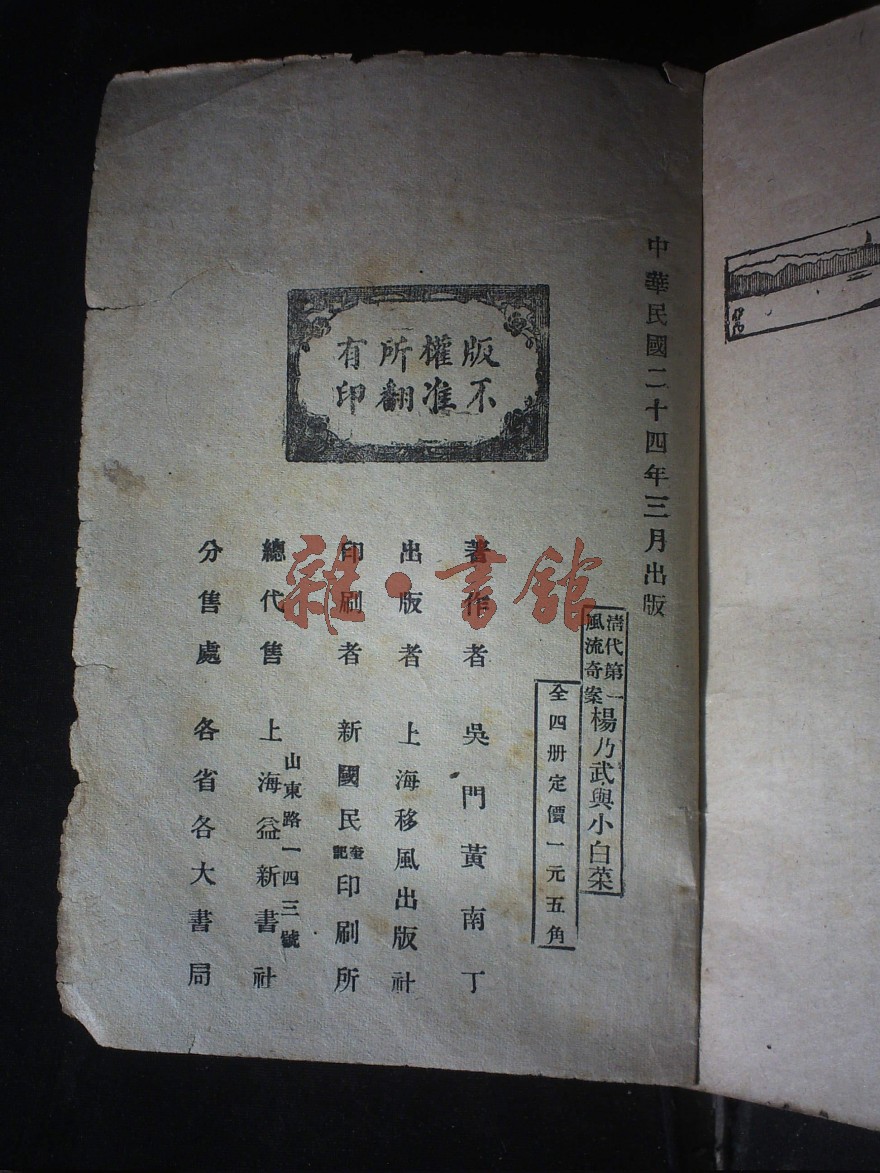 中華民國二十四年三月出版
清代第一
風流奇案
楊乃武與小白菜
全四册定價一元五角
版權所有
不准翻印
著作者 吳門黃南丁
出版者 上海移風出版社
印刷者 新國民奎記印刷所
總代售 上海益新書社
山東路一四三號
分售處 各省各大書局
雜·書館